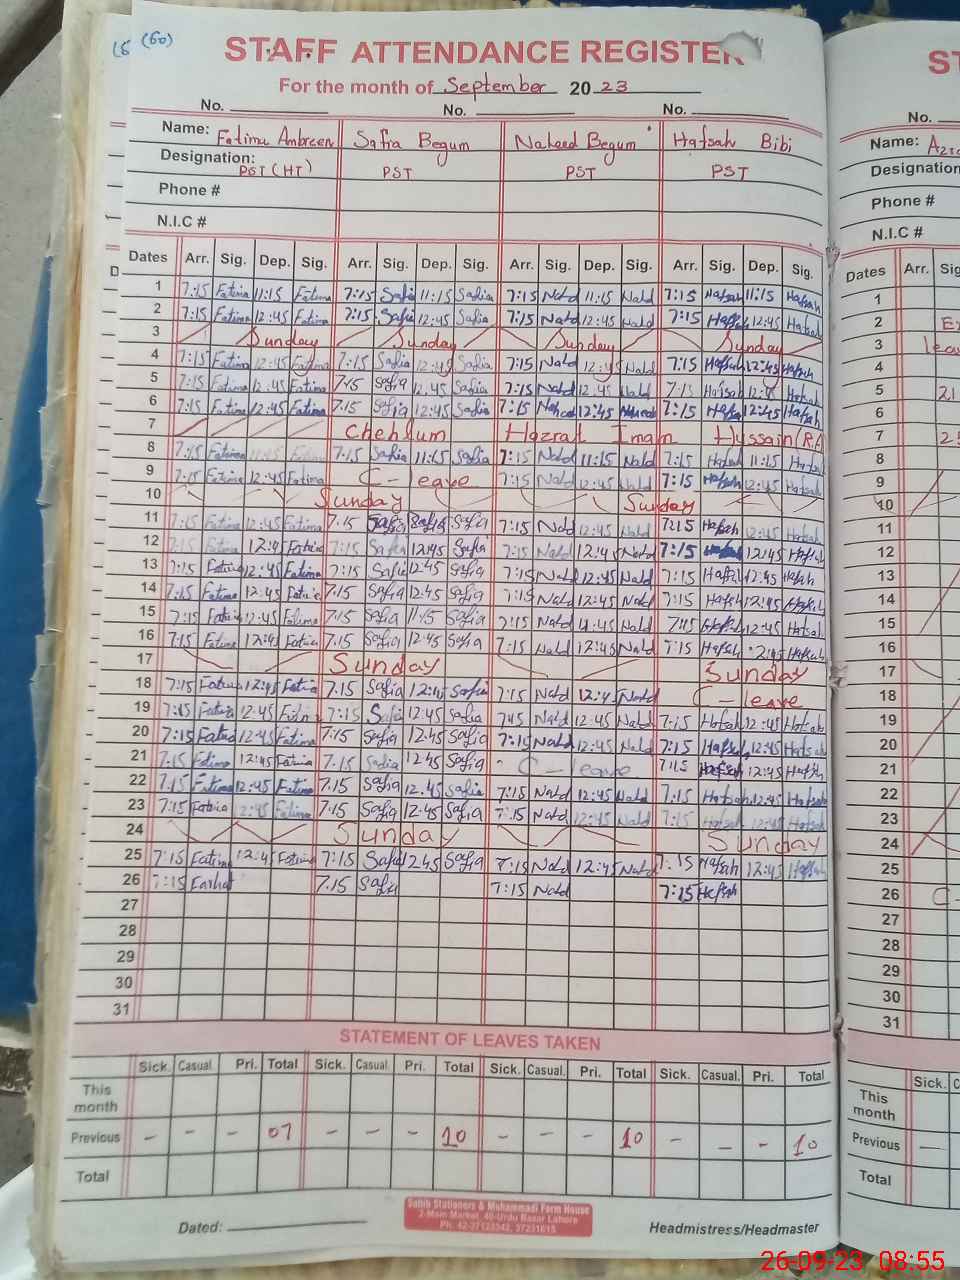 15 (60)
STAFF ATTENDANCE REGISTER
For the month of September 20 23
No. No. No.
Name: Fatima Ambreen Safia Begum Naheed Begum Hafsah Bibi
Designation: PST (HT) PST PST PST
Phone #
N.I.C #
Dates Arr. Sig. Dep. Sig. Arr. Sig. Dep. Sig. Arr. Sig. Dep. Sig. Arr. Sig. Dep. Sig.
1 7:15 Fatima 11:15 Fatima 7:15 Safia 11:15 Safia 7:15 Nahd 11:15 Nahd 7:15 Hafsah 11:15 Hafsah
2 7:15 Fatima 12:45 Fatima 7:15 Safia 12:45 Safia 7:15 Nahd 12:45 Nahd 7:15 Hafsah 12:45 Hafsah
3 Sunday Sunday Sunday Sunday
4 7:15 Fatima 12:45 Fatima 7:15 Safia 12:45 Safia 7:15 Nahd 12:45 Nahd 7:15 Hafsah 12:45 Hafsah
5 7:15 Fatima 12:45 Fatima 7:15 Safia 12:45 Safia 7:15 Nahd 12:45 Nahd 7:15 Hafsah 12:45 Hafsah
6 7:15 Fatima 12:45 Fatima 7:15 Safia 12:45 Safia 7:15 Naheed 12:45 Naheed 7:15 Hafsa 12:45 Hafsah
7 Chehlum Hazrat Imam Hussain (RA)
8 7:15 Fatima 7:15 Safia 11:15 Safia 7:15 Nahd 11:15 Nahd 7:15 Hafsah 11:15 Hafsah
9 7:15 Fatima 12:45 Fatima C-leave 7:15 Nahd 12:45 Nahd 7:15 Hafsah 12:45 Hafsah
10 Sunday Sunday
11 7:15 Fatima 12:45 Fatima 7:15 Safia Safia Safia 7:15 Nahd 12:45 Nahd 7:15 Hafsah 12:45 Hafsah
12 7:15 Fatima 12:45 Fatima 7:15 Safia 12:45 Safia 7:15 Nahd 12:45 Nahd 7:15 12:45 Hafsah
13 7:15 Fatima 12:45 Fatima 7:15 Safia 12:45 Safia 7:15 Nahd 12:45 Nahd 7:15 Hafsah 12:45 Hafsah
14 7:15 Fatima 12:45 Fatima 7:15 Safia 12:45 Safia 7:15 Nahd 12:45 Nahd 7:15 Hafsah 12:45 Hafsah
15 7:15 Fatima 12:45 Fatima 7:15 Safia 11:15 Safia 7:15 Nahd Nahd 7:15 Hafsah 12:45 Hafsah
16 7:15 Fatima 12:45 Fatima 7:15 Safia 12:45 Safia 7:15 Nahd 12:45 Nahd 7:15 Hafsah 12:45 Hafsah
17 Sunday Sunday
18 7:15 Fatima 12:45 Fatima 7:15 Safia 12:45 Safia 7:15 Nahd 12:4 Nahd C-leave
19 7:15 Fatima 12:45 Fatima 7:15 Safia 12:45 Safia 7:15 Nahd 12:45 Nahd 7:15 Hafsah 12:45 Hafsah
20 7:15 Fatima 12:45 Fatima 7:15 Safia 12:45 Safia 7:15 Nahd 12:45 Nahd 7:15 Hafsah 12:45 Hafsah
21 7:15 Fatima 12:45 Fatima 7:15 Safia 12:45 Safia C-leave 7:15 Hafsah 12:45 Hafsah
22 7:15 Fatima 12:45 Fatima 7:15 Safia 12:45 Safia 7:15 Nahd 12:45 Nahd 7:15 Hafsah 12:45 Hafsah
23 7:15 Fatima 12:45 Fatima 7:15 Safia 12:45 Safia 7:15 Nahd 12:45 Nahd 7:15 Hafsah 12:45 Hafsah
24 Sunday Sunday
25 7:15 Fatima 12:45 Fatima 7:15 Safia 12:45 Safia 7:15 Nahd 12:45 Nahd 7:15 Hafsah 12:45 Hafsah
26 7:15 7:15 Safia 7:15 Nahd 7:15 Hafsah
27
28
29
30
31
STATEMENT OF LEAVES TAKEN
Sick. Casual. Pri. Total Sick. Casual. Pri. Total Sick. Casual. Pri. Total Sick. Casual. Pri. Total
This month
Previous - - - 07 - - - 10 - - - 10 - - - 10
Total
Dated:
Sahib Stationers & Muhammadi Form House
2-Main Market, 40-Urdu Bazar Lahore
Ph. 42-37123342, 37231615
Headmistress/Headmaster
ST
No.
Name:
Designation
Phone #
N.I.C #
Dates Arr.
1
2
3 lea
4
5 21
6
7
8
9
10
11
12
13
14
15
16
17
18
19
20
21
22
23
24
25
26 C-
27
28
29
30
31
Sick.
This month
Previous -
Total
26-09-23 08:55